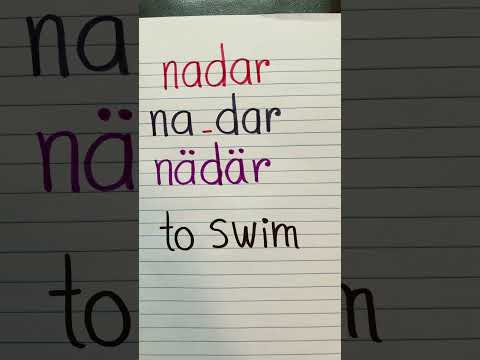 nadar
na-dar
nädär
to swim